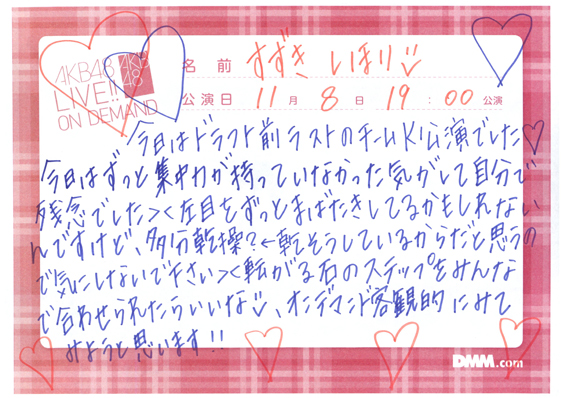 AKB48
LIVE!!
ON DEMAND
AKB
48
名前 すずき しほり
公演日 11月8日 19:00公演
今日はドラフト前ラストのチームK公演でした♡
今日はずっと集中力が持っていなかった気がして自分で
残念でした＞＜左目をずっとまばたきしてるかもしれない
んですけど、多分乾操?←乾そうしているからだと思うの
で気にしないで下さい＞＜転がる石のステップをみんな
で合わせられたらいいな、オンデマンド客観的にみて
みようと思います!!
DMM.com